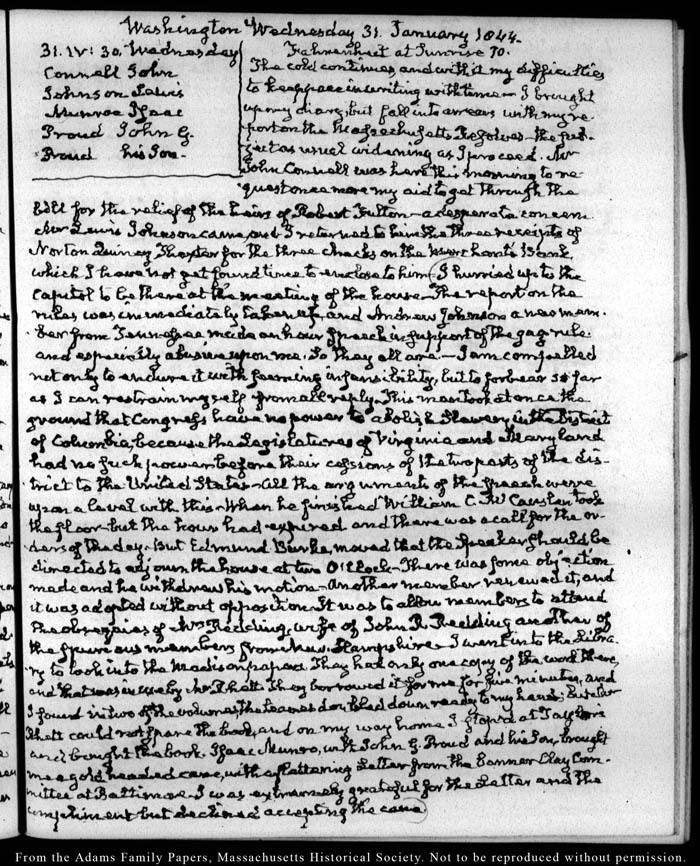 Washington Wednesday 31. January 1844.
31. IV: 30. Wednesday
Connell John
Johnson Lewis
Munroe Isaac
Proud John G.
Proud his Son.
Fahrenheit at Sunrise 10.
The cold continues and with it my difficulties
to keep pace in writing with time — I brought
up my diary, but fall into arrears with my re-
port on the Massachusetts Resolves — the sub-
ject as usual widening as I proceed. Mr
John Connell was here this morning to re-
quest once more my aid to get through the
bill for the relief of the heirs of Robert Fulton — a desperate concern
Mr Lewis Johnson came and I returned to him the three receipts of
Norton Quincy Thaxter for the three checks on the Merchants Bank,
which I have not yet found time to enclose to him. I hurried up to the
Capitol to be there at the meeting of the house — The report on the
rules was immediately taken up, and Andrew Johnson a new mem-
ber from Tennessee made an hour speech in support of the gag rule
and especially abusive upon me. So they all are — I am compelled
not only to endure it with seeming insensibility, but to forbear so far
as I can restrain myself from all reply. This man took at once the
ground that Congress have no power to abolish Slavery in the District
of Columbia, because the Legislatures of Virginia and Maryland
had no such power before their cessions of the two parts of the dis-
trict to the United States — All the arguments of the speech were
upon a level with this. When he finished William C. McCauslen took
the floor — but the hour had expired and there was a call for the or-
ders of the day. But Edmund Burke, moved that the Speaker should be
directed to adjourn the house at two O'Clock — There was some objection
made and he withdrew his motion — Another member renewed it, and
it was adopted without opposition. It was to allow members to attend
the obsequies of Mrs Redding, wife of John R. Redding another of
the members from New-Hampshire. I went into the Libra-
ry to look into the Madison papers. They had only one copy of the work there,
and that was in use by Mr Rhett. They borrowed it for me for five minutes, and
I found in two of the volumes, the leaves doubled down ready to my hand; but
Rhett could not spare the book, and on my way home I stop'd at Taylor's
and bought the book. Isaac Munro, with John G. Proud and his Son, brought
me a gold headed cane, with a flattering Letter from the Banner Clay Com-
mittee at Baltimore. I was extremely grateful for the Letter and the
compliment but declined accepting the cane
From the Adams Family Papers, Massachusetts Historical Society. Not to be reproduced without permission.